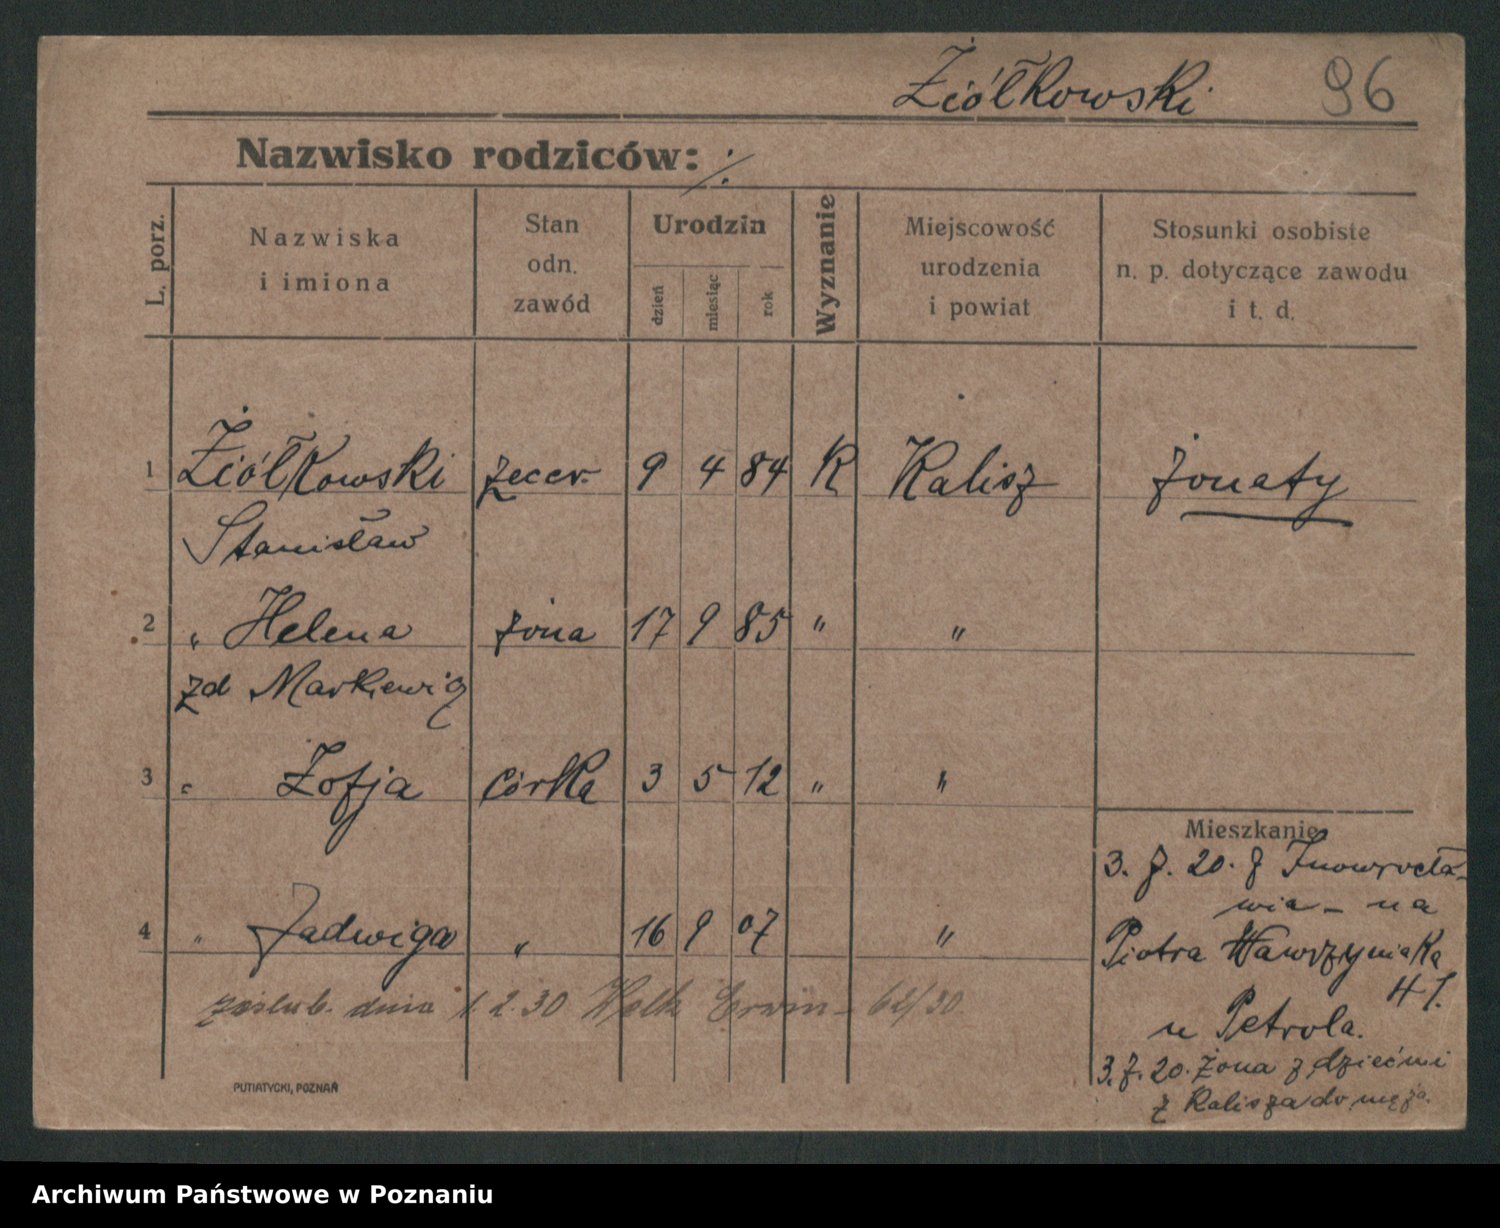 Żiółkowski 96
Nazwisko rodziców: ./.
L. porz.
Nazwiska
i imiona
Stan
odn.
zawód
Urodzin
dzień
miesiąc
rok
Wyznanie
Miejscowość
urodzenia
i powiat
Stosunki osobiste
n. p. dotyczące zawodu
i t. d.
1 Żiółkowski zecer 9 4 84 R Kalisz żonaty
Stanisław
2 " Helena żona 17 9 85 " "
zd Markiewicz
3 " Zofja córka 3 5 12 " "
Mieszkanie
3. 7. 20. z Inowrocła-
wia - na
4 " Jadwiga " 16 9 07 "
Piotra Wawrzyniaka
zaślub. dnia 1. 2. 30 Welk Erwin - 62/30
u Petrola.
3. 7. 20. żona z dziećmi
z Kalisza do męża.
PUTIATYCKI, POZNAŃ
Archiwum Państwowe w Poznaniu